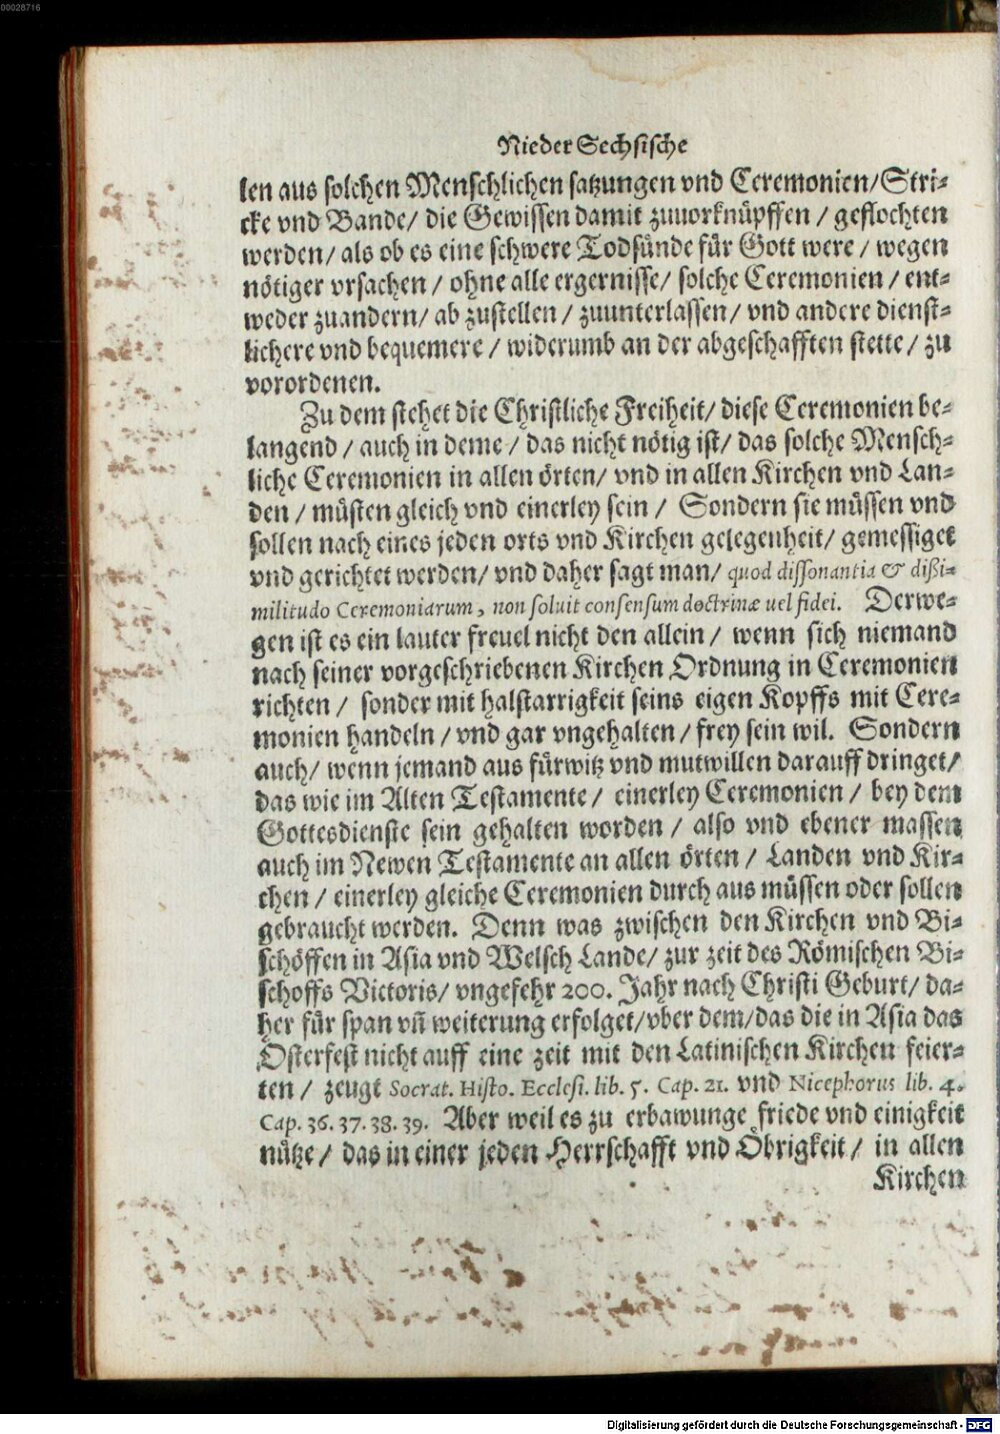 00028716
Nieder Sechsische
len aus solchen Menschlichen satzungen vnd Ceremonien/Stri⸗
cke vnd Bande/ die Gewissen damit zuuorknüpffen / geflochten
werden/ als ob es eine schwere Todsünde für Gott were / wegen
nötiger vrsachen / ohne alle ergernisse/ solche Ceremonien / ent⸗
weder zuandern/ ab zustellen / zuunterlassen/ vnd andere dienst⸗
lichere vnd bequemere / widerumb an der abgeschafften stette / zu
vorordenen.
Zu dem stehet die Christliche Freiheit/ diese Ceremonien be⸗
langend / auch in deme / das nicht nötig ist/ das solche Mensch⸗
liche Ceremonien in allen örten/ vnd in allen Kirchen vnd Lan⸗
den / müsten gleich vnd einerley sein / Sondern sie müssen vnd
sollen nach eines jeden orts vnd Kirchen gelegenheit/ gemessiget
vnd gerichtet werden/ vnd daher sagt man/ quod dissonantia & dißi⸗
militudo Ceremoniarum, non soluit consensum doctrinæ uel fidei. Derwe⸗
gen ist es ein lauter freuel nicht den allein / wenn sich niemand
nach seiner vorgeschriebenen Kirchen Ordnung in Ceremonien
richten / sonder mit halstarrigkeit seins eigen Kopffs mit Cere⸗
monien handeln / vnd gar vngehalten / frey sein wil. Sondern
auch/ wenn jemand aus fürwitz vnd mutwillen darauff dringet/
das wie im Alten Testamente / einerley Ceremonien / bey dem
Gottesdienste sein gehalten worden / also vnd ebener massen
auch im Newen Testamente an allen örten / Landen vnd Kir⸗
chen / einerley gleiche Ceremonien durch aus müssen oder sollen
gebraucht werden. Denn was zwischen den Kirchen vnd Bi⸗
schöffen in Asia vnd Welsch Lande/ zur zeit des Römischen Bi⸗
schoffs Victoris/ vngefehr 200. Jahr nach Christi Geburt/ da⸗
her für span vñ weiterung erfolget/vber dem/das die in Asia das
Osterfest nicht auff eine zeit mit den Latinischen Kirchen feier⸗
ten / zeugt Socrat. Histo. Ecclesi. lib. 5. Cap. 21. vnd Nicephorus lib. 4.
Cap. 36. 37. 38. 39. Aber weil es zu erbawunge friede vnd einigkeit
nütze / das in einer jeden Herrschafft vnd Öbrigkeit / in allen
Kirchen
Digitalisierung gefördert durch die Deutsche Forschungsgemeinschaft - DFG